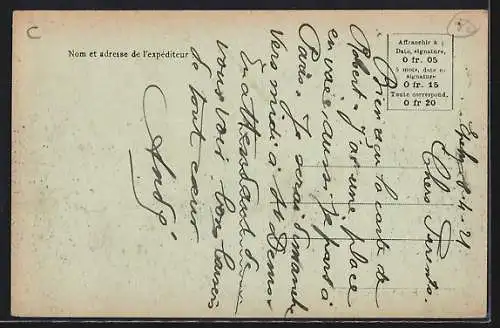 C
Nom et adresse de l'expéditeur
Affranchir à :
Date, signature,
0 fr. 05
5 mots, date et
signature
0 fr. 15
Toute correspond.
0 fr 20
8-4-21
Chers Parents.
Bien reçu la carte de
Robert. J'ai une place
en vue aussi je pars à
Paris. Je serai
vers midi à St Denis
En attendant de
vous voir bons baisers
de tout cœur
André